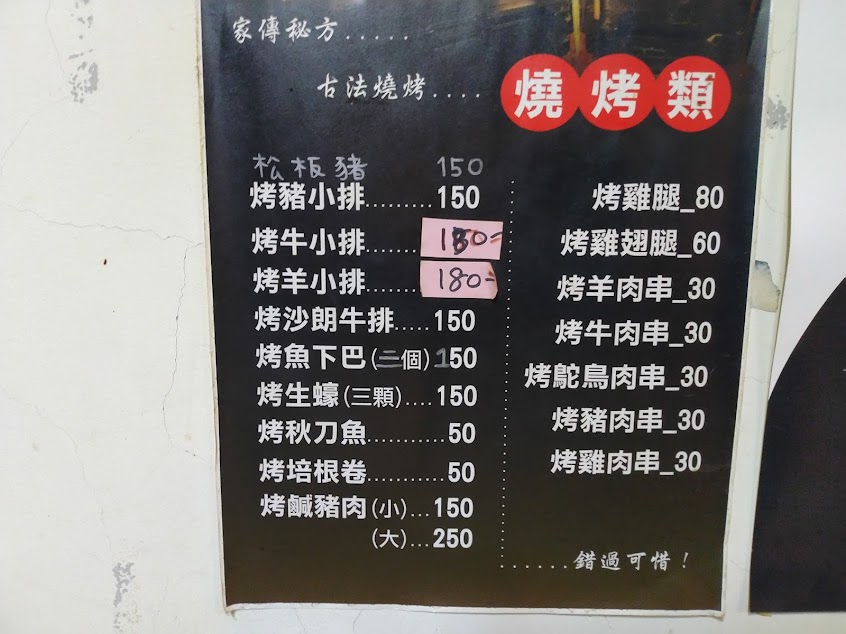 家傳秘方.....
古法燒烤....
燒烤類
松板豬 150
烤豬小排.........150
烤牛小排........180-
烤羊小排........180-
烤沙朗牛排.....150
烤魚下巴(二個)150
烤生蠔(三顆)....150
烤秋刀魚............50
烤培根卷............50
烤鹹豬肉(小)...150
(大)...250
烤雞腿_80
烤雞翅腿_60
烤羊肉串_30
烤牛肉串_30
烤鴕鳥肉串_30
烤豬肉串_30
烤雞肉串_30
......錯過可惜！